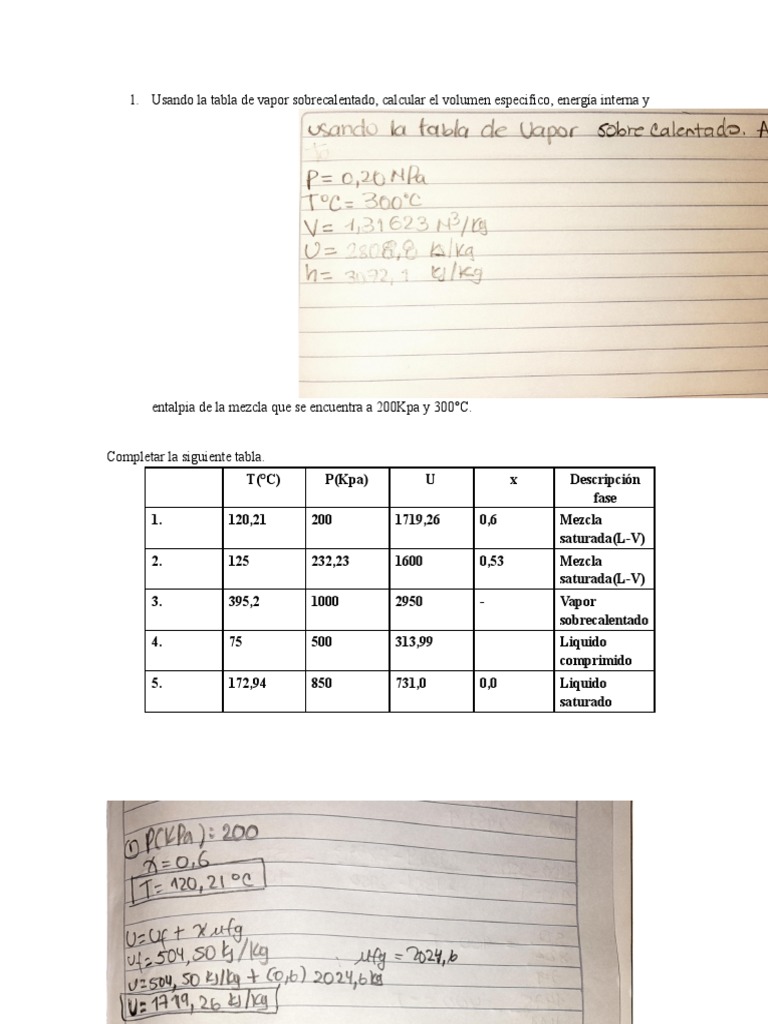 1. Usando la tabla de vapor sobrecalentado, calcular el volumen especifico, energía interna y
usando la tabla de Vapor sobre calentado. A
P= 0,20 MPa
T°C= 300°C
V= 1,31623 M³/kg
U= 2808,8 kJ/kg
h= 3072,1 kJ/kg
entalpia de la mezcla que se encuentra a 200Kpa y 300°C.
Completar la siguiente tabla.
T(°C) P(Kpa) U x Descripción
fase
1. 120,21 200 1719,26 0,6 Mezcla
saturada(L-V)
2. 125 232,23 1600 0,53 Mezcla
saturada(L-V)
3. 395,2 1000 2950 - Vapor
sobrecalentado
4. 75 500 313,99 Liquido
comprimido
5. 172,94 850 731,0 0,0 Liquido
saturado
① P(KPa): 200
x=0,6
T= 120,21 °C
U=Uf + x ufg
uf=504,50 kJ/kg ; ufg = 2024,6
U=504,50 kJ/kg + (0,6) 2024,6 kg
U=1719,26 kJ/kg